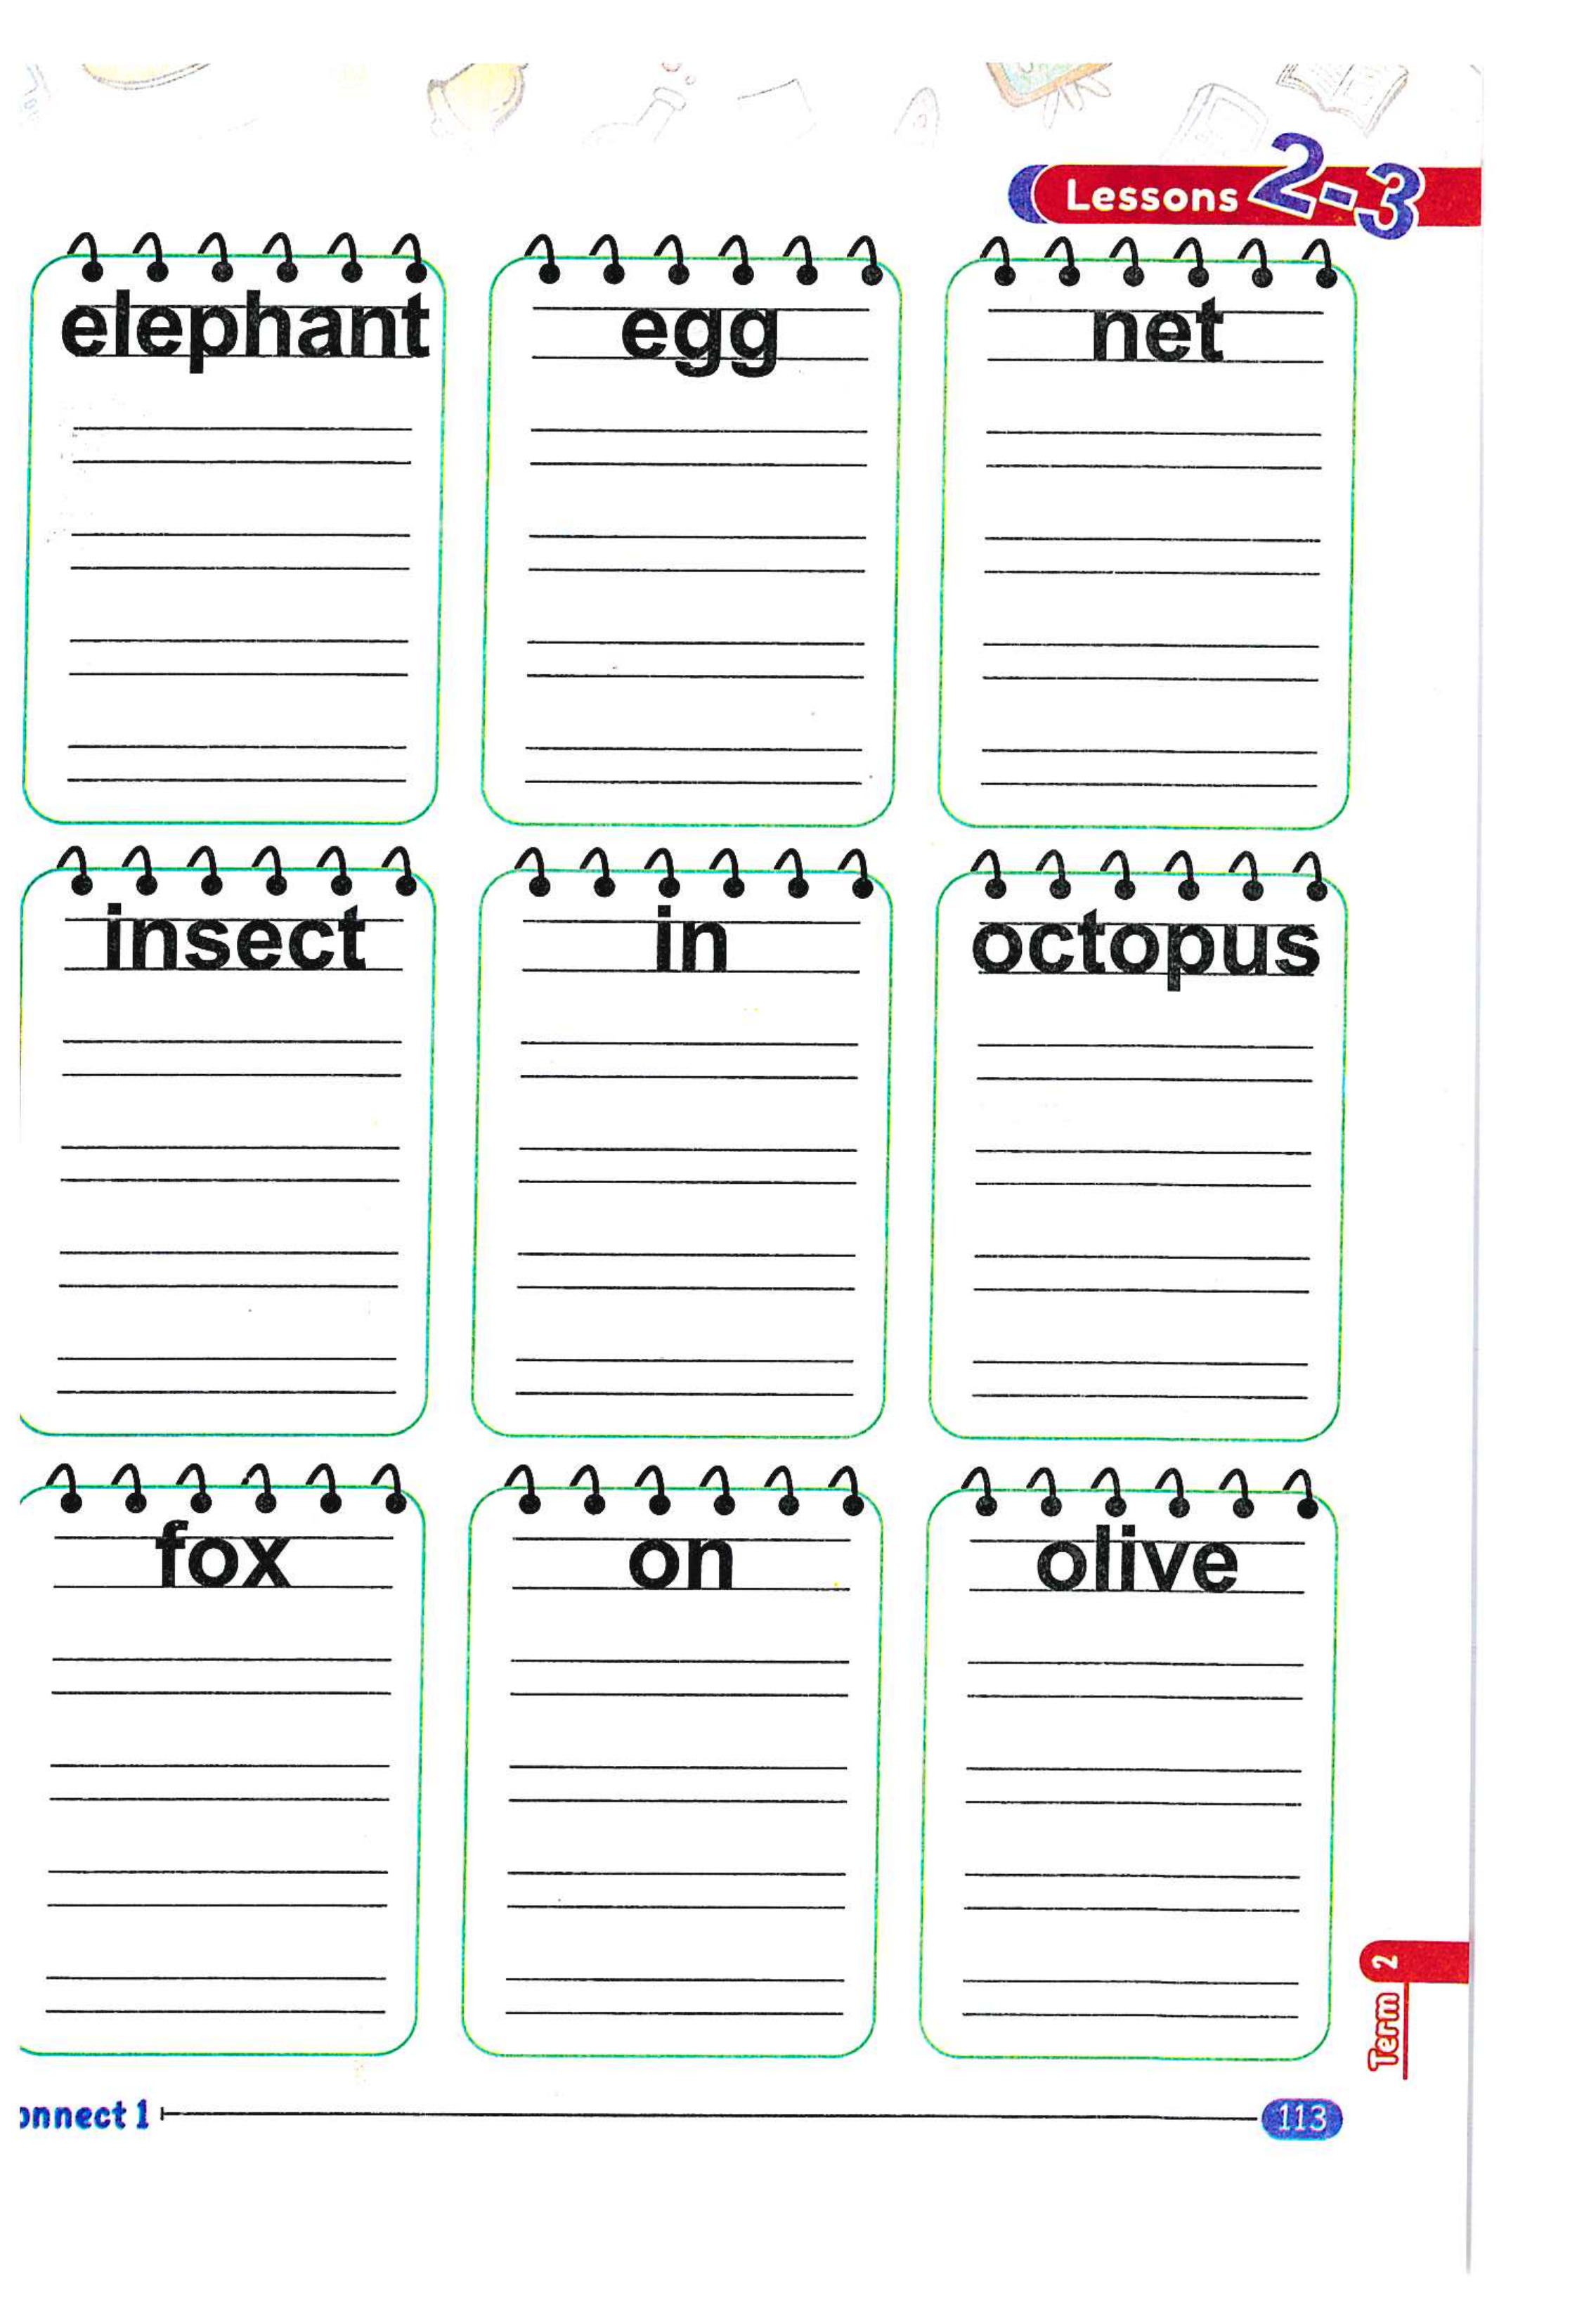 Lessons 2-3
elephant
egg
net
insect
in
octopus
fox
on
olive
Term 2
onnect 1
113